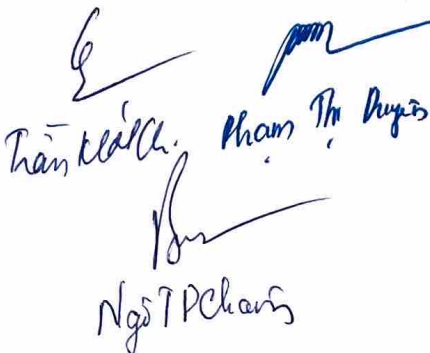 Trần Khát Ch.
Phạm Thị Duyên
Ngô T P Cha